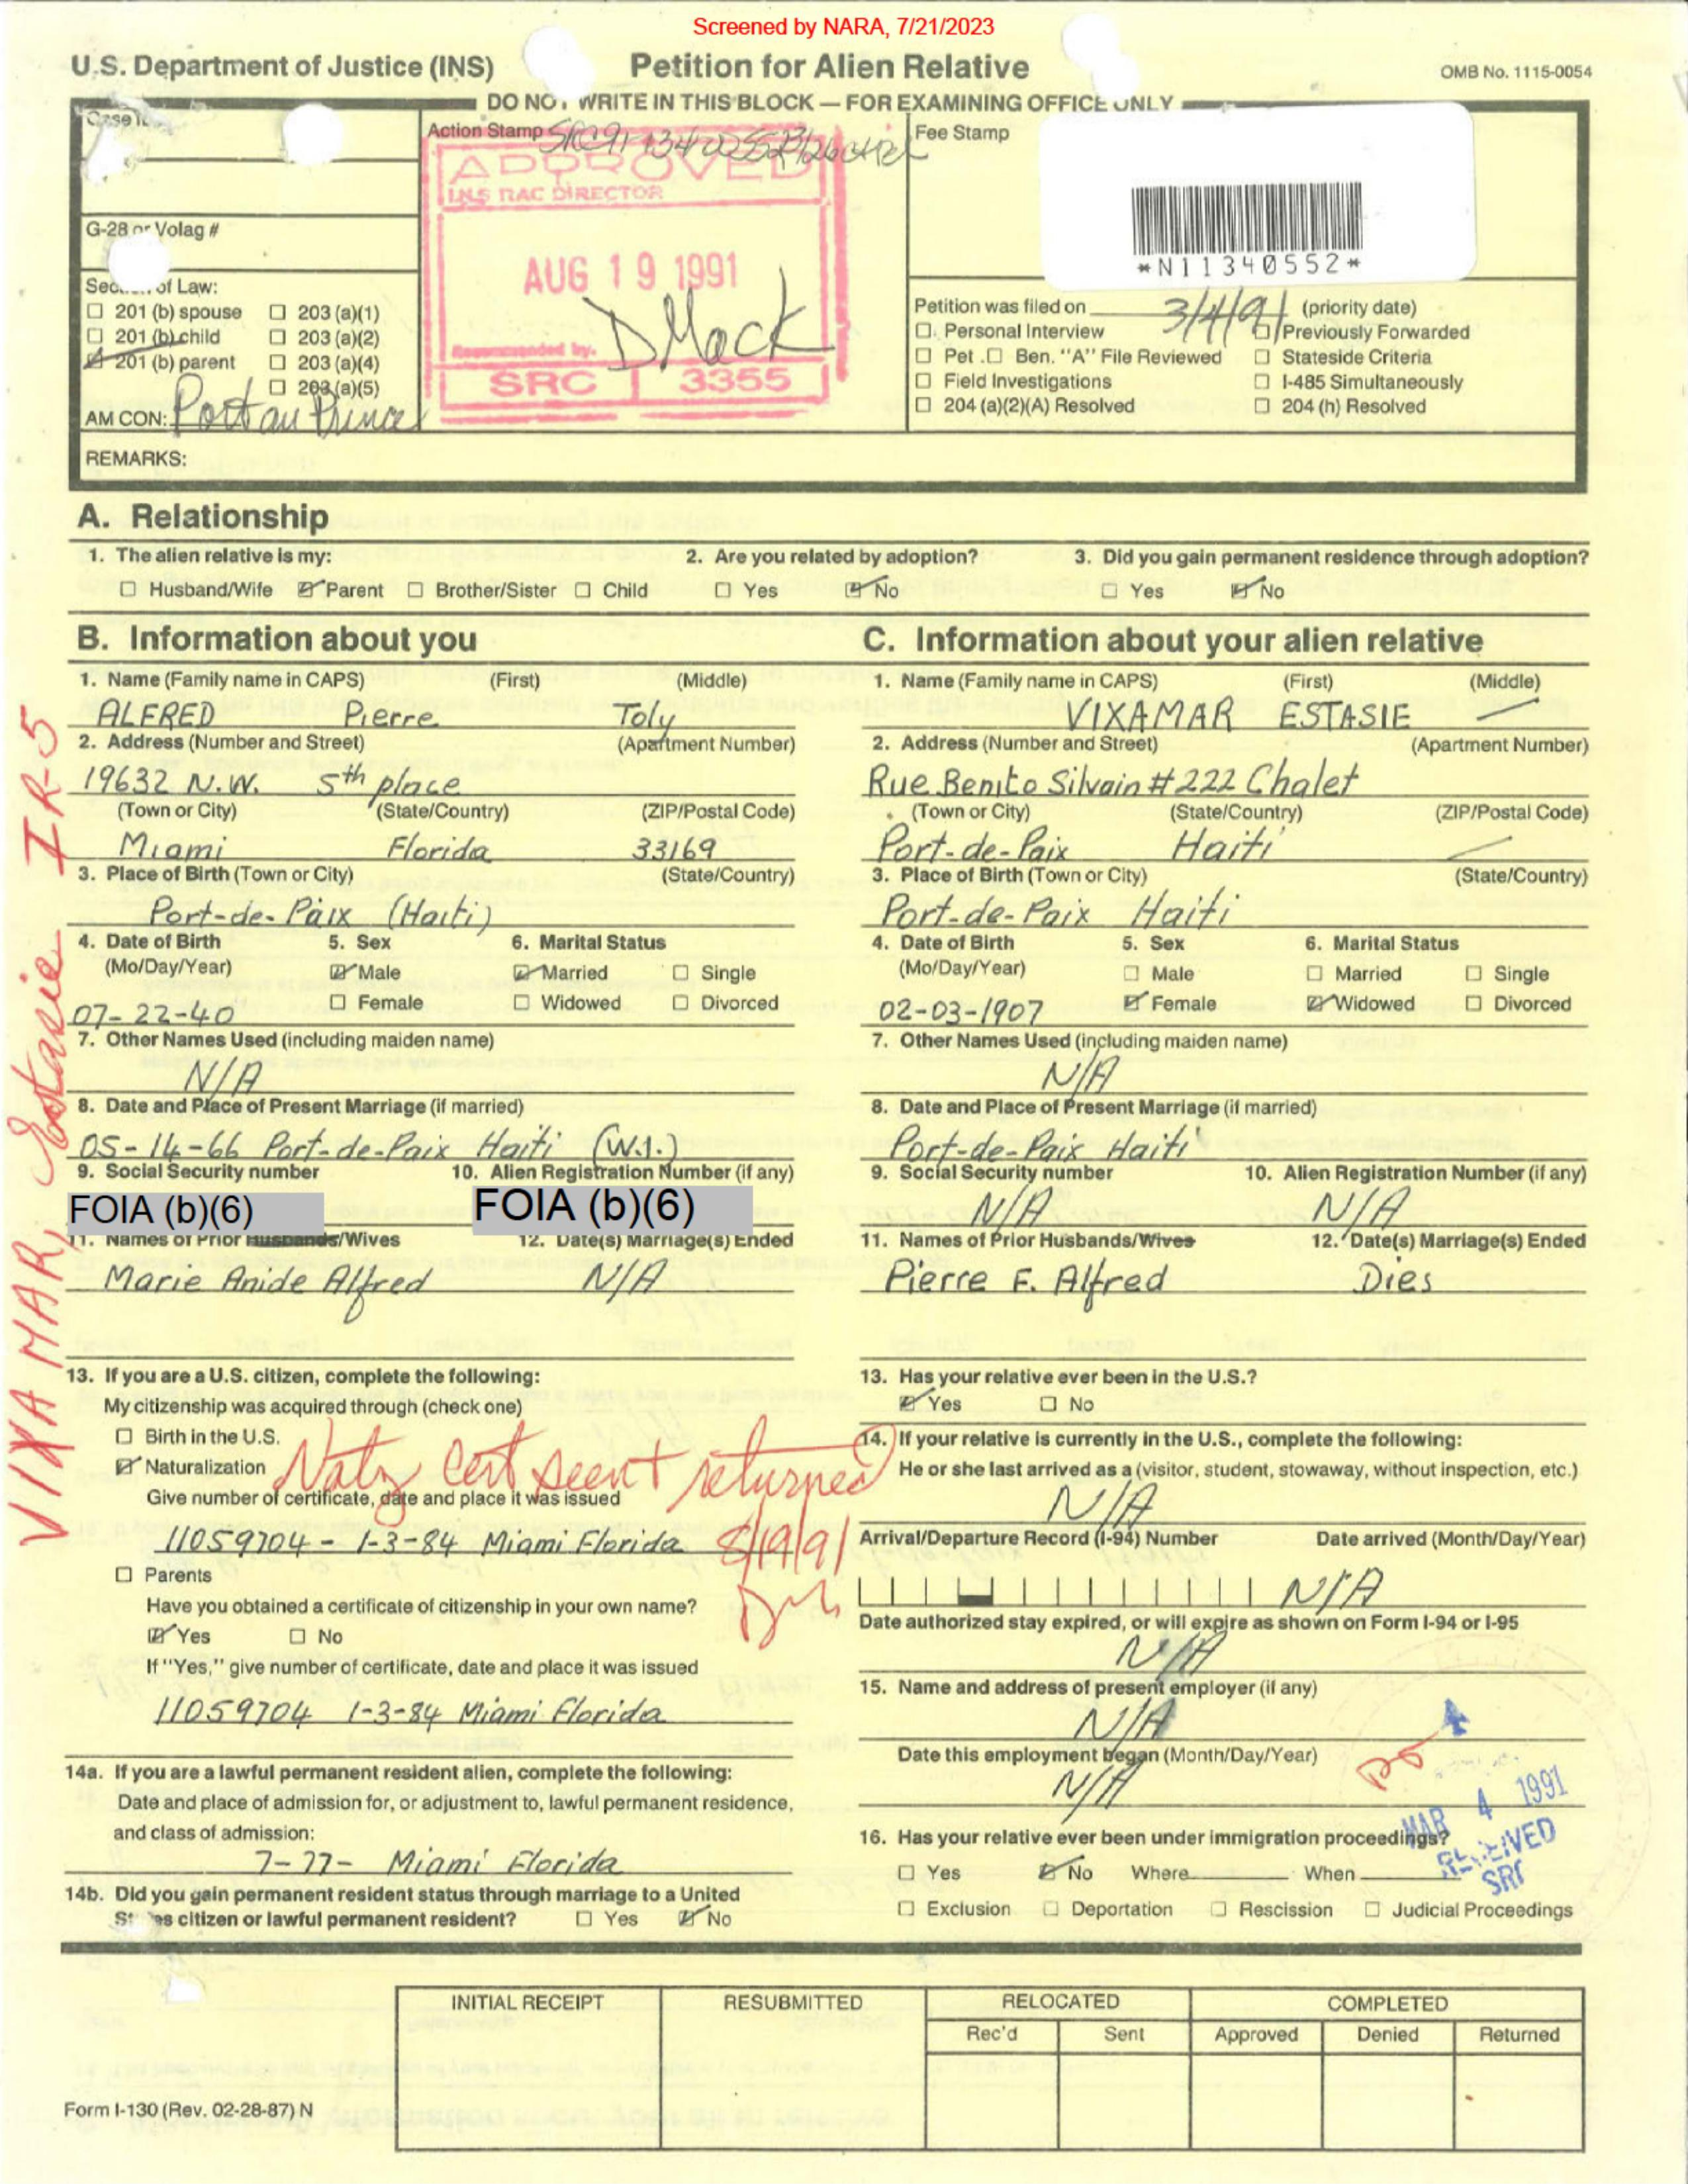 Screened by NARA, 7/21/2023
U.S. Department of Justice (INS) Petition for Alien Relative OMB No. 1115-0054
DO NOT WRITE IN THIS BLOCK — FOR EXAMINING OFFICE ONLY
Action Stamp Fee Stamp
APPROVED
INS RAC DIRECTOR
*N11340552*
G-28 or Volag #
AUG 19 1991
D Mack
Recommended by.
SRC 3355
of Law:
☐ 201 (b) spouse ☐ 203 (a)(1)
☐ 201 (b) child ☐ 203 (a)(2)
☑ 201 (b) parent ☐ 203 (a)(4)
☐ 203 (a)(5)
AM CON: Port au Prince
Petition was filed on 3/4/91 (priority date)
☐ Personal Interview ☐ Previously Forwarded
☐ Pet. ☐ Ben. "A" File Reviewed ☐ Stateside Criteria
☐ Field Investigations ☐ I-485 Simultaneously
☐ 204 (a)(2)(A) Resolved ☐ 204 (h) Resolved
REMARKS:
A. Relationship
1. The alien relative is my: 2. Are you related by adoption? 3. Did you gain permanent residence through adoption?
☐ Husband/Wife ☑ Parent ☐ Brother/Sister ☐ Child ☐ Yes ☑ No ☐ Yes ☑ No
B. Information about you
1. Name (Family name in CAPS) (First) (Middle)
ALFRED Pierre Toly
2. Address (Number and Street) (Apartment Number)
19632 N.W. 5th place
(Town or City) (State/Country) (ZIP/Postal Code)
Miami Florida 33169
3. Place of Birth (Town or City) (State/Country)
Port-de-Paix (Haiti)
4. Date of Birth 5. Sex 6. Marital Status
(Mo/Day/Year) ☑ Male ☑ Married ☐ Single
☐ Female ☐ Widowed ☐ Divorced
07-22-40
7. Other Names Used (including maiden name)
N/A
8. Date and Place of Present Marriage (if married)
05-14-66 Port-de-Paix Haiti (W.I.)
9. Social Security number 10. Alien Registration Number (if any)
FOIA (b)(6) FOIA (b)(6)
11. Names of Prior Husbands/Wives 12. Date(s) Marriage(s) Ended
Marie Anide Alfred N/A
13. If you are a U.S. citizen, complete the following:
My citizenship was acquired through (check one)
☐ Birth in the U.S.
☑ Naturalization
Natz cert seen + returned
Give number of certificate, date and place it was issued
11059704 - 1-3-84 Miami Florida
8/19/91
☐ Parents
Have you obtained a certificate of citizenship in your own name?
☑ Yes ☐ No
If "Yes," give number of certificate, date and place it was issued
11059704 1-3-84 Miami Florida
14a. If you are a lawful permanent resident alien, complete the following:
Date and place of admission for, or adjustment to, lawful permanent residence,
and class of admission:
7-77- Miami Florida
14b. Did you gain permanent resident status through marriage to a United
States citizen or lawful permanent resident? ☐ Yes ☑ No
C. Information about your alien relative
1. Name (Family name in CAPS) (First) (Middle)
VIXAMAR ESTASIE —
2. Address (Number and Street) (Apartment Number)
Rue Benito Silvain # 222 Chalet
(Town or City) (State/Country) (ZIP/Postal Code)
Port-de-Paix Haiti —
3. Place of Birth (Town or City) (State/Country)
Port-de-Paix Haiti
4. Date of Birth 5. Sex 6. Marital Status
(Mo/Day/Year) ☐ Male ☐ Married ☐ Single
☑ Female ☑ Widowed ☐ Divorced
02-03-1907
7. Other Names Used (including maiden name)
N/A
8. Date and Place of Present Marriage (if married)
Port-de-Paix Haiti
9. Social Security number 10. Alien Registration Number (if any)
N/A N/A
11. Names of Prior Husbands/Wives 12. Date(s) Marriage(s) Ended
Pierre F. Alfred Dies
13. Has your relative ever been in the U.S.?
☑ Yes ☐ No
14. If your relative is currently in the U.S., complete the following:
He or she last arrived as a (visitor, student, stowaway, without inspection, etc.)
N/A
Arrival/Departure Record (I-94) Number Date arrived (Month/Day/Year)
N/A
Date authorized stay expired, or will expire as shown on Form I-94 or I-95
N/A
15. Name and address of present employer (if any)
N/A
Date this employment began (Month/Day/Year)
N/A
MAR 4 1991
RECEIVED
SRC
16. Has your relative ever been under immigration proceedings?
☐ Yes ☑ No Where When
☐ Exclusion ☐ Deportation ☐ Rescission ☐ Judicial Proceedings
VIXAMAR, Estasie IR-5
INITIAL RECEIPT RESUBMITTED RELOCATED COMPLETED
Rec'd Sent Approved Denied Returned
Form I-130 (Rev. 02-28-87) N